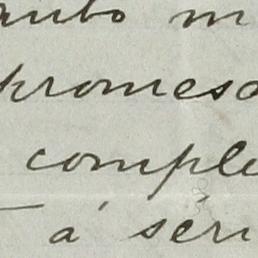 anto m
promesa
comple
á séri